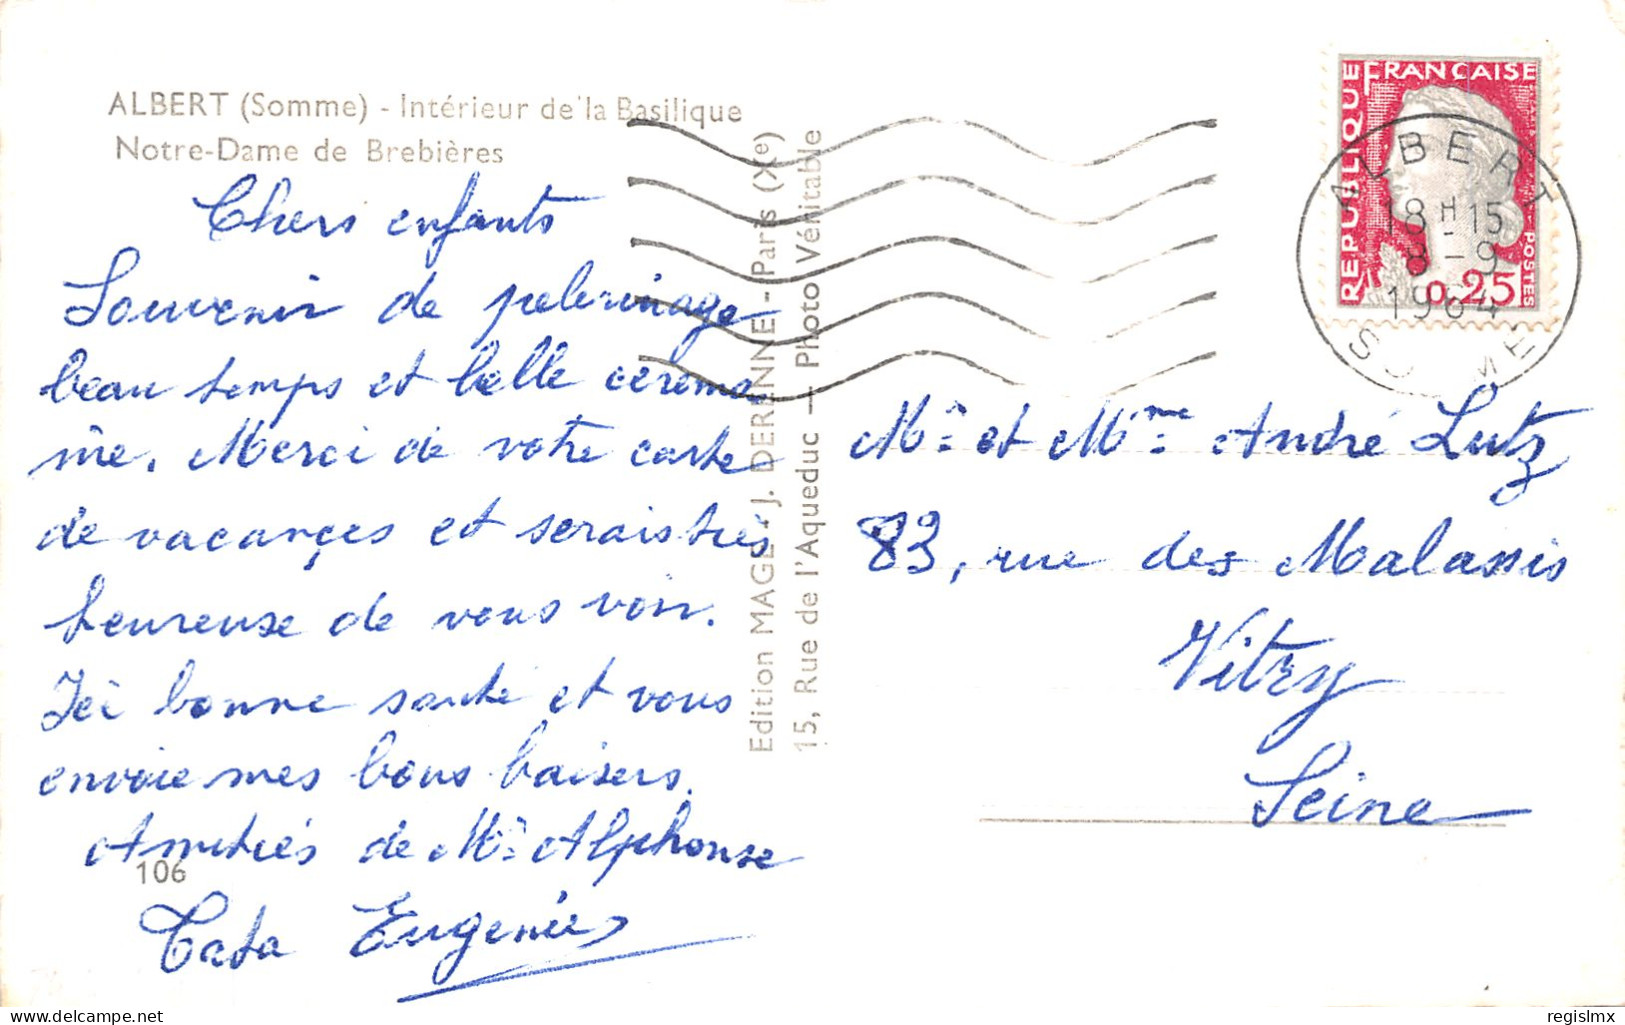 ALBERT (Somme) - Intérieur de la Basilique
Notre-Dame de Brebières
Chers enfants
Souvenir de pelerinage
beau temps et belle cérémo
nie. Merci de votre carte
de vacançes et serais très
heureuse de vous voir.
Ici bonne santé et vous
envoie mes bons baisers.
Amitiés de Mr Alphonse
106
Tata Eugénie
Edition MAGE - J. DERENNE - Paris (Xe)
15, Rue de l'Aqueduc — Photo Véritable
REPUBLIQUE FRANÇAISE
POSTES
0,25
ALBERT
18 H 15
8 - 9
1964
SOMME
Mr et Mme André Lutz
83, rue des Malassis
Vitry
Seine
regislmx
delcampe.net